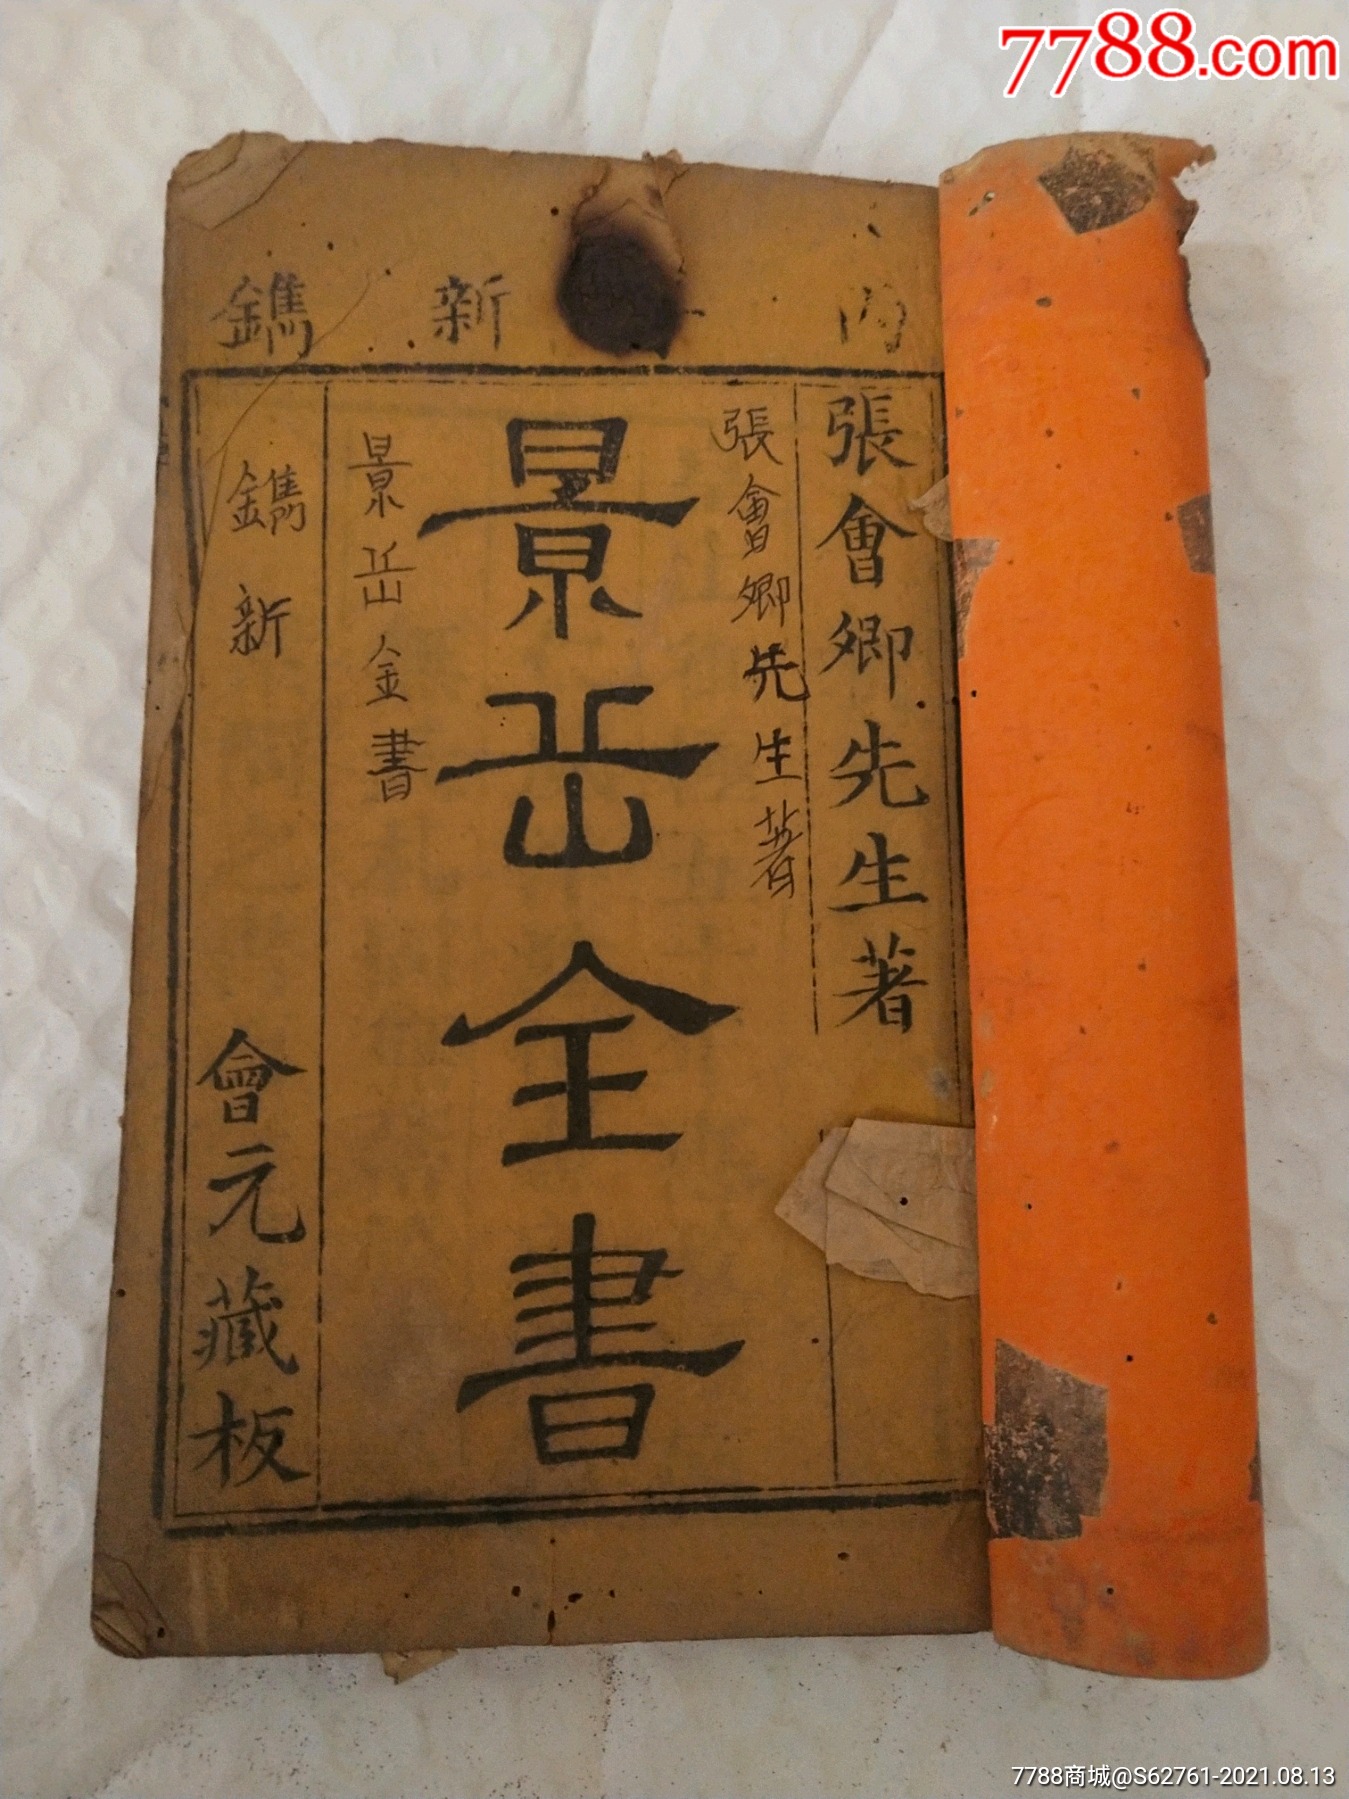 7788.com
丙
新鐫
張會卿先生著
張會卿先生著
景岳全書
景岳金書
鐫新
會元藏板
7788商城@S62761-2021.08.13